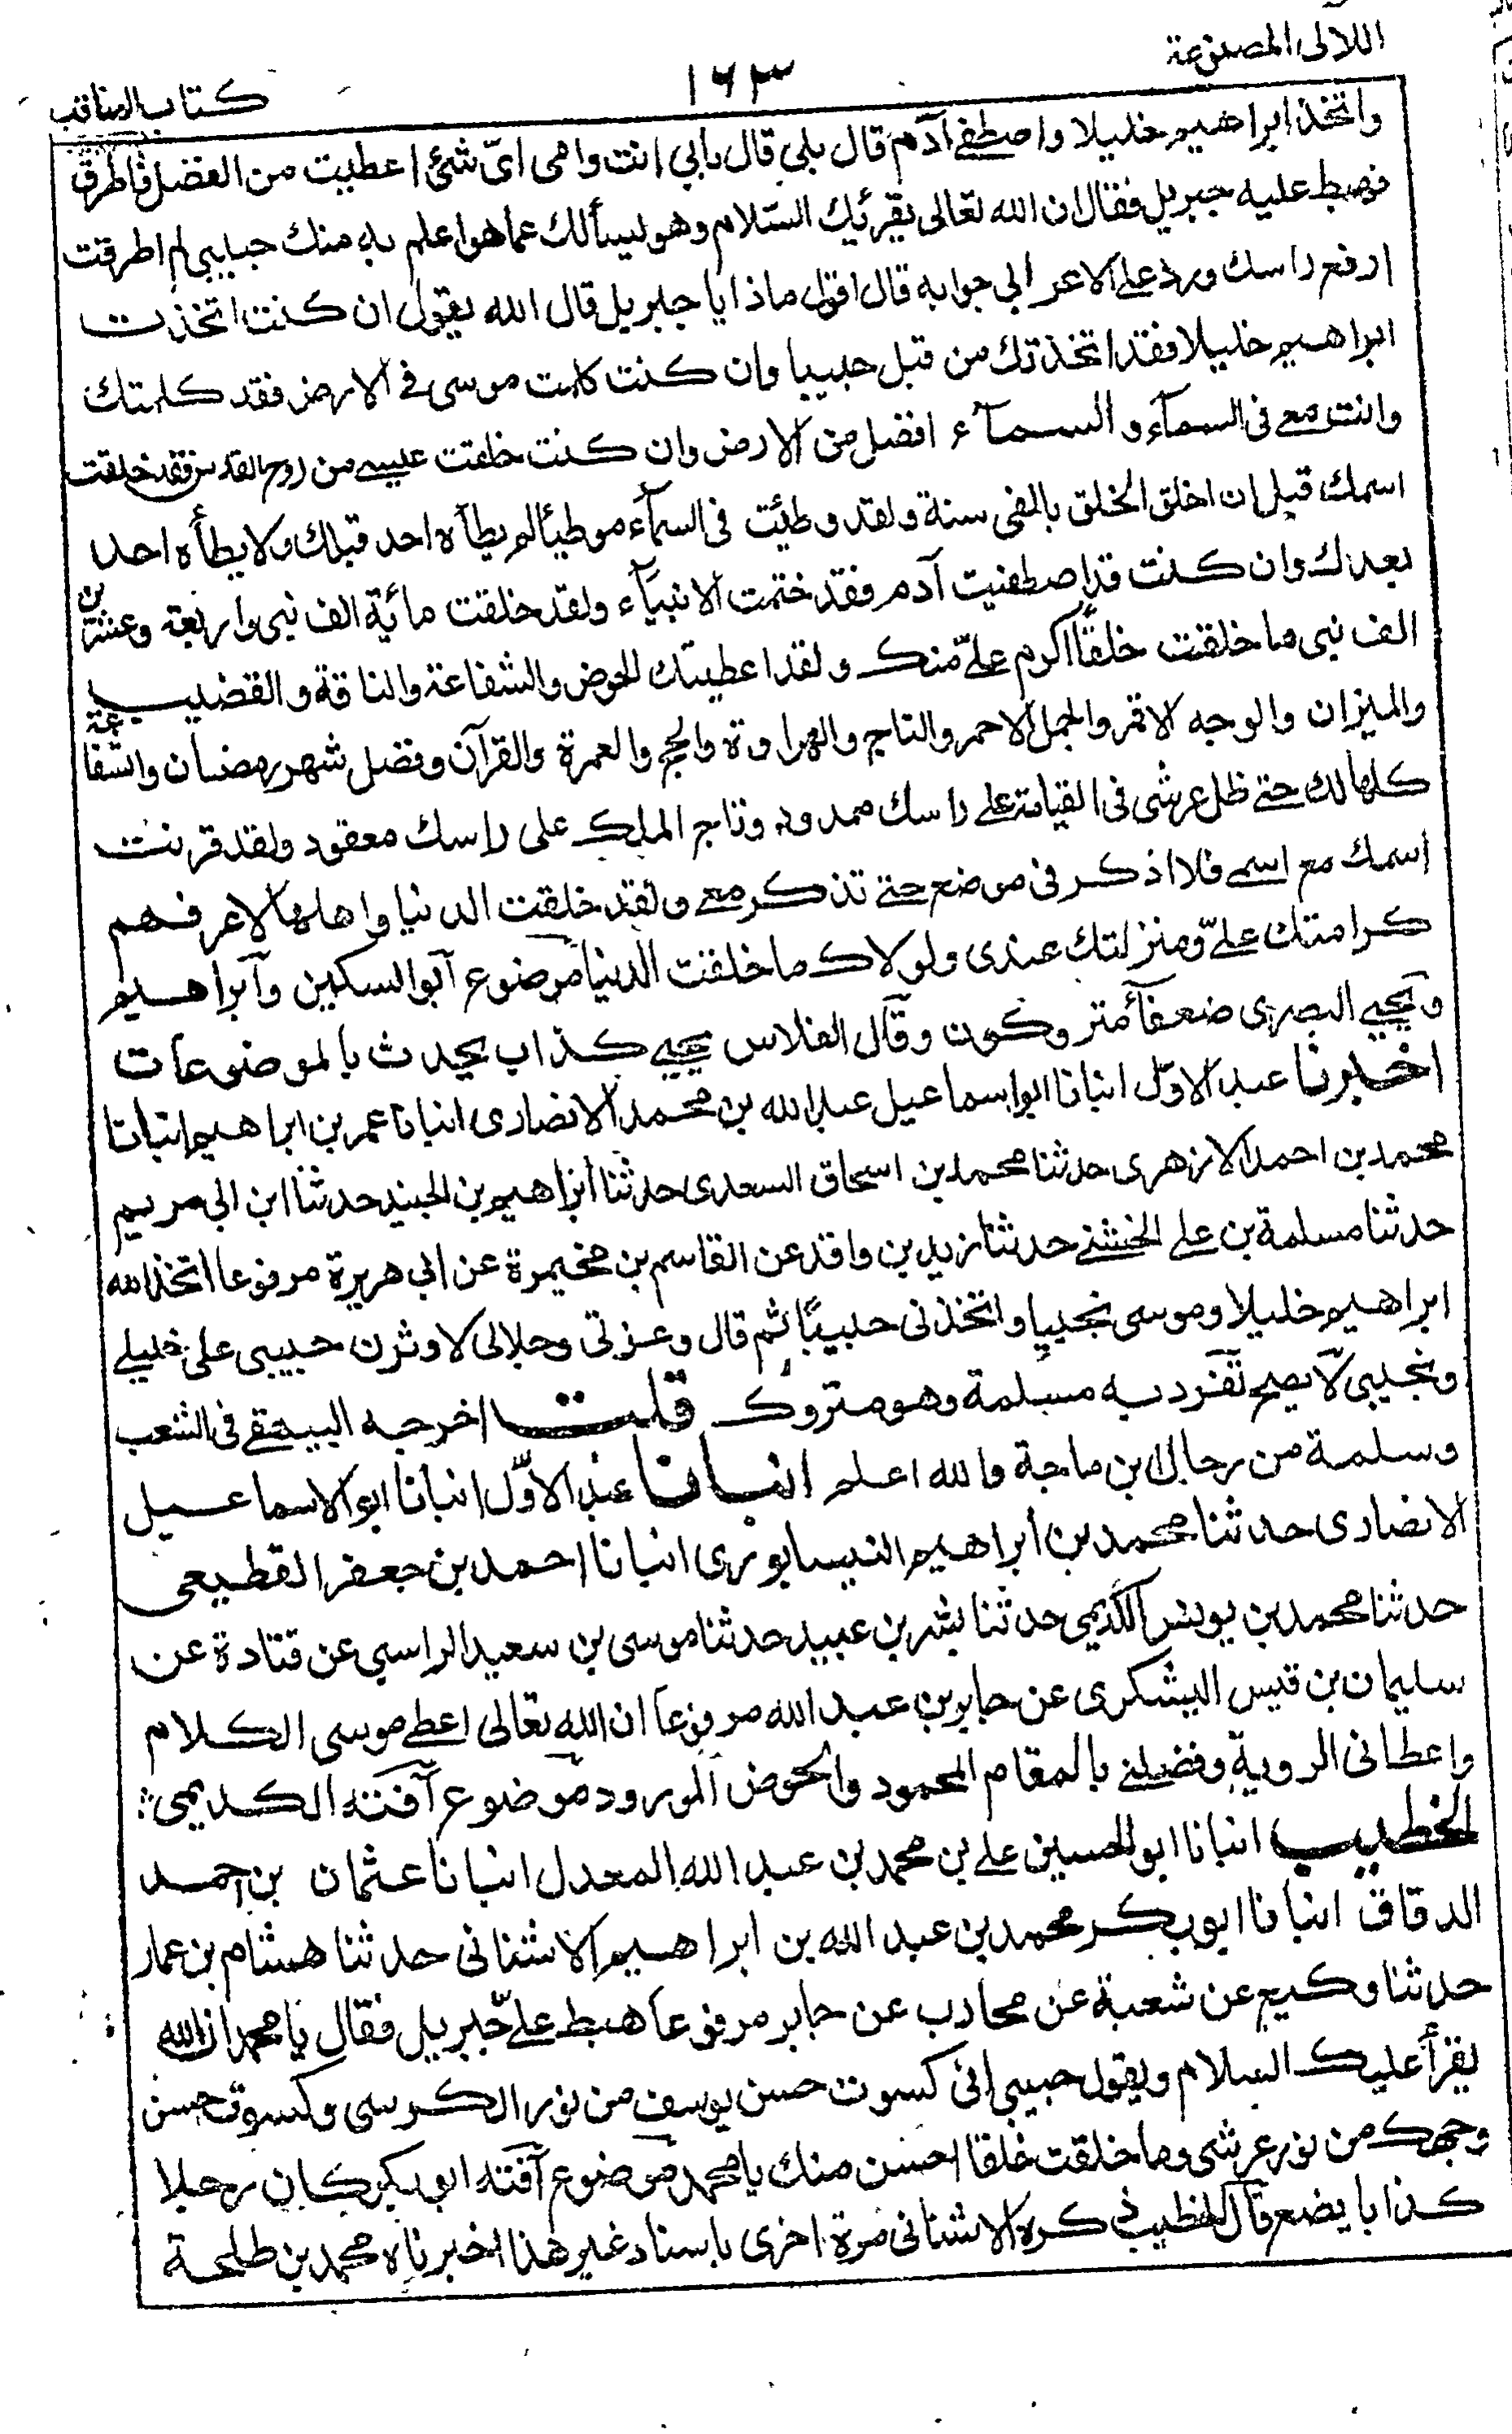 اللآلى المصنوعة
١٦٣
كتاب المناقب
واتخذ ابراهيم خليلا واصطفے آدم قال بلى قال بابي انت وامى اىّ شئ اعطيت من الفضل فاطرق
فهبط عليه جبريل فقال ان الله تعالى يقرئك السّلام وهو يسألك عما هو اعلم به منك حبيبى لم اطرقت
ارفع راسك ورد على الاعرابي جوابه قال اقول ماذا يا جبريل قال الله يقول ان كنت اتخذت
ابراهيم خليلا فقد اتخذتك من قبل حبيبا وان كنت كلمت موسى فى الارض فقد كلمتك
وانت معى فى السمآء و السمآء افضل من الارض وان كنت خلقت عيسے من روح القدس فقد خلقت
اسمك قبل ان اخلق الخلق بالفى سنة ولقد وطيئت فى السمآء موطيئالم يطأه احد قبلك ولا يطأه احد
بعدك وان كنت قد اصطفيت آدم فقد ختمت الانبيآء ولقد خلقت مائية الف نبى واربعة وعشرين
الف نبى ما خلقت خلقاً اكرم علىّ منك ولقد اعطيتك الحوض والشفاعة والناقة والقضيب
والميزان والوجه الاقمر والجمل الاحمر والتاج والهراوة والحج والعمرة والقرآن وفضل شهر رمضان والشفاعة
كلها لك حتے ظل عرشى فى القيامة على راسك ممدود وتاج الملك على راسك معقود ولقد قرنت
اسمك مع اسمے فلا اذكر فى موضع حتے تذكر معے ولقد خلقت الدنيا واهلها لاعرفهم
كرامتك علىّ ومنزلتك عندى ولولاك ما خلقت الدنيا موضوع آبوالسكين وآبراهيم
ويحيى البصرى ضعفآء متروكون وقآل الفلاس يحيے كذاب يحدث بالموضوعات
اخبرنا عبد الاوّل انبانا ابو اسماعيل عبد الله بن محمد الانصارى انبانا عمر بن ابراهيم انبانا
محمد بن احمد الازهرى حدثنا محمد بن اسحاق السعدى حدثنا ابراهيم بن الجنيد حدثنا ابن ابى مريم
حدثنا مسلمة بن علے الخشنے حدثنا زيد بن واقد عن القاسم بن مخيمرة عن ابى هريرة مرفوعا اتخذ الله
ابراهيم خليلا وموسى نجييا واتخذنى حبيبًا ثم قال وعزتى وجلالى لاوثرن حبيبى على خليلے
ونجيبى لآ يصح تفرد به مسلمة وهو متروك قلت اخرجه البيهقے فى الشعب
وسلمة من رجال ابن ماجة والله اعلم انبانا عبد الاوّل انبانا ابو الاسماعيل
الانصارى حدثنا محمد بن ابراهيم النيسابورى انبانا احمد بن جعفر القطيعى
حدثنا محمد بن يونس الكديمى حدثنا بشر بن عبيد حدثنا موسى بن سعيد الراسبي عن قتادة عن
سليمان بن قيس اليشكرى عن جابر بن عبد الله مرفوعا ان الله تعالى اعطے موسى الكلام
واعطانى الروية وفضلنے بالمقام المحمود والحوض المورود موضوع آفته الكديمى
الخطيب انبانا ابو الحسين علے بن محمد بن عبد الله المعدل انبانا عثمان بن احمد
الدقاق انبانا ابو بكر محمد بن عبد الله بن ابراهيم الاشنانى حدثنا هشام بن عمار
حدثنا وكيع عن شعبة عن محارب عن جابر مرفوعا هبط علىّ جبريل فقال يا محمد ان الله
يقرأ عليك السلام ويقول حبيبي إنى كسوت حسن يوسف من نور الكرسى وكسوت حسن
وجهك من نور عرشى وما خلقت خلقا احسن منك يا محمد موضوع آفته ابو بكر كان رجلا
كذابا يضع قآل الخطيب ذكره الاشنانى مرة اخرى باسناد غير هذا اخبرناه محمد بن طلحة